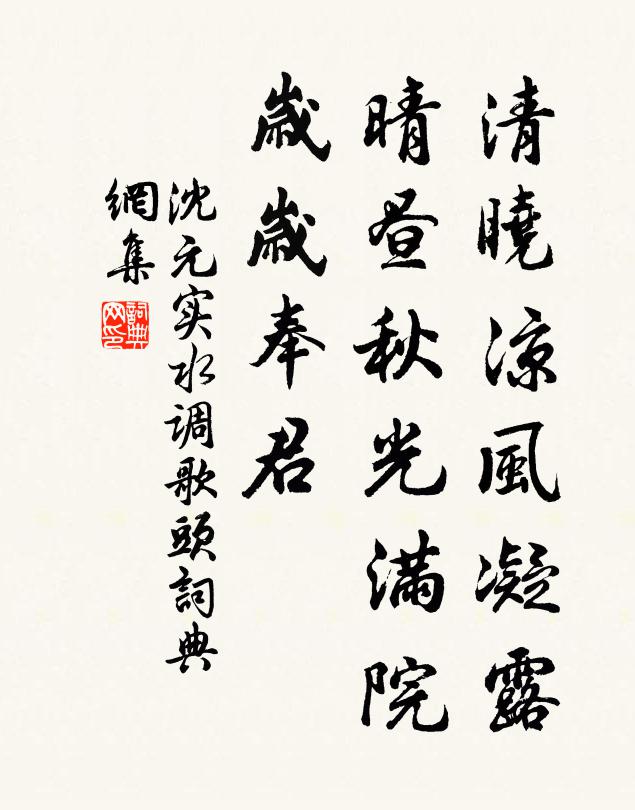 清曉涼風凝露
晴昼秋光满院
歳歳奉君
沈元实水调歌頭詞典
網集
詞典
网印